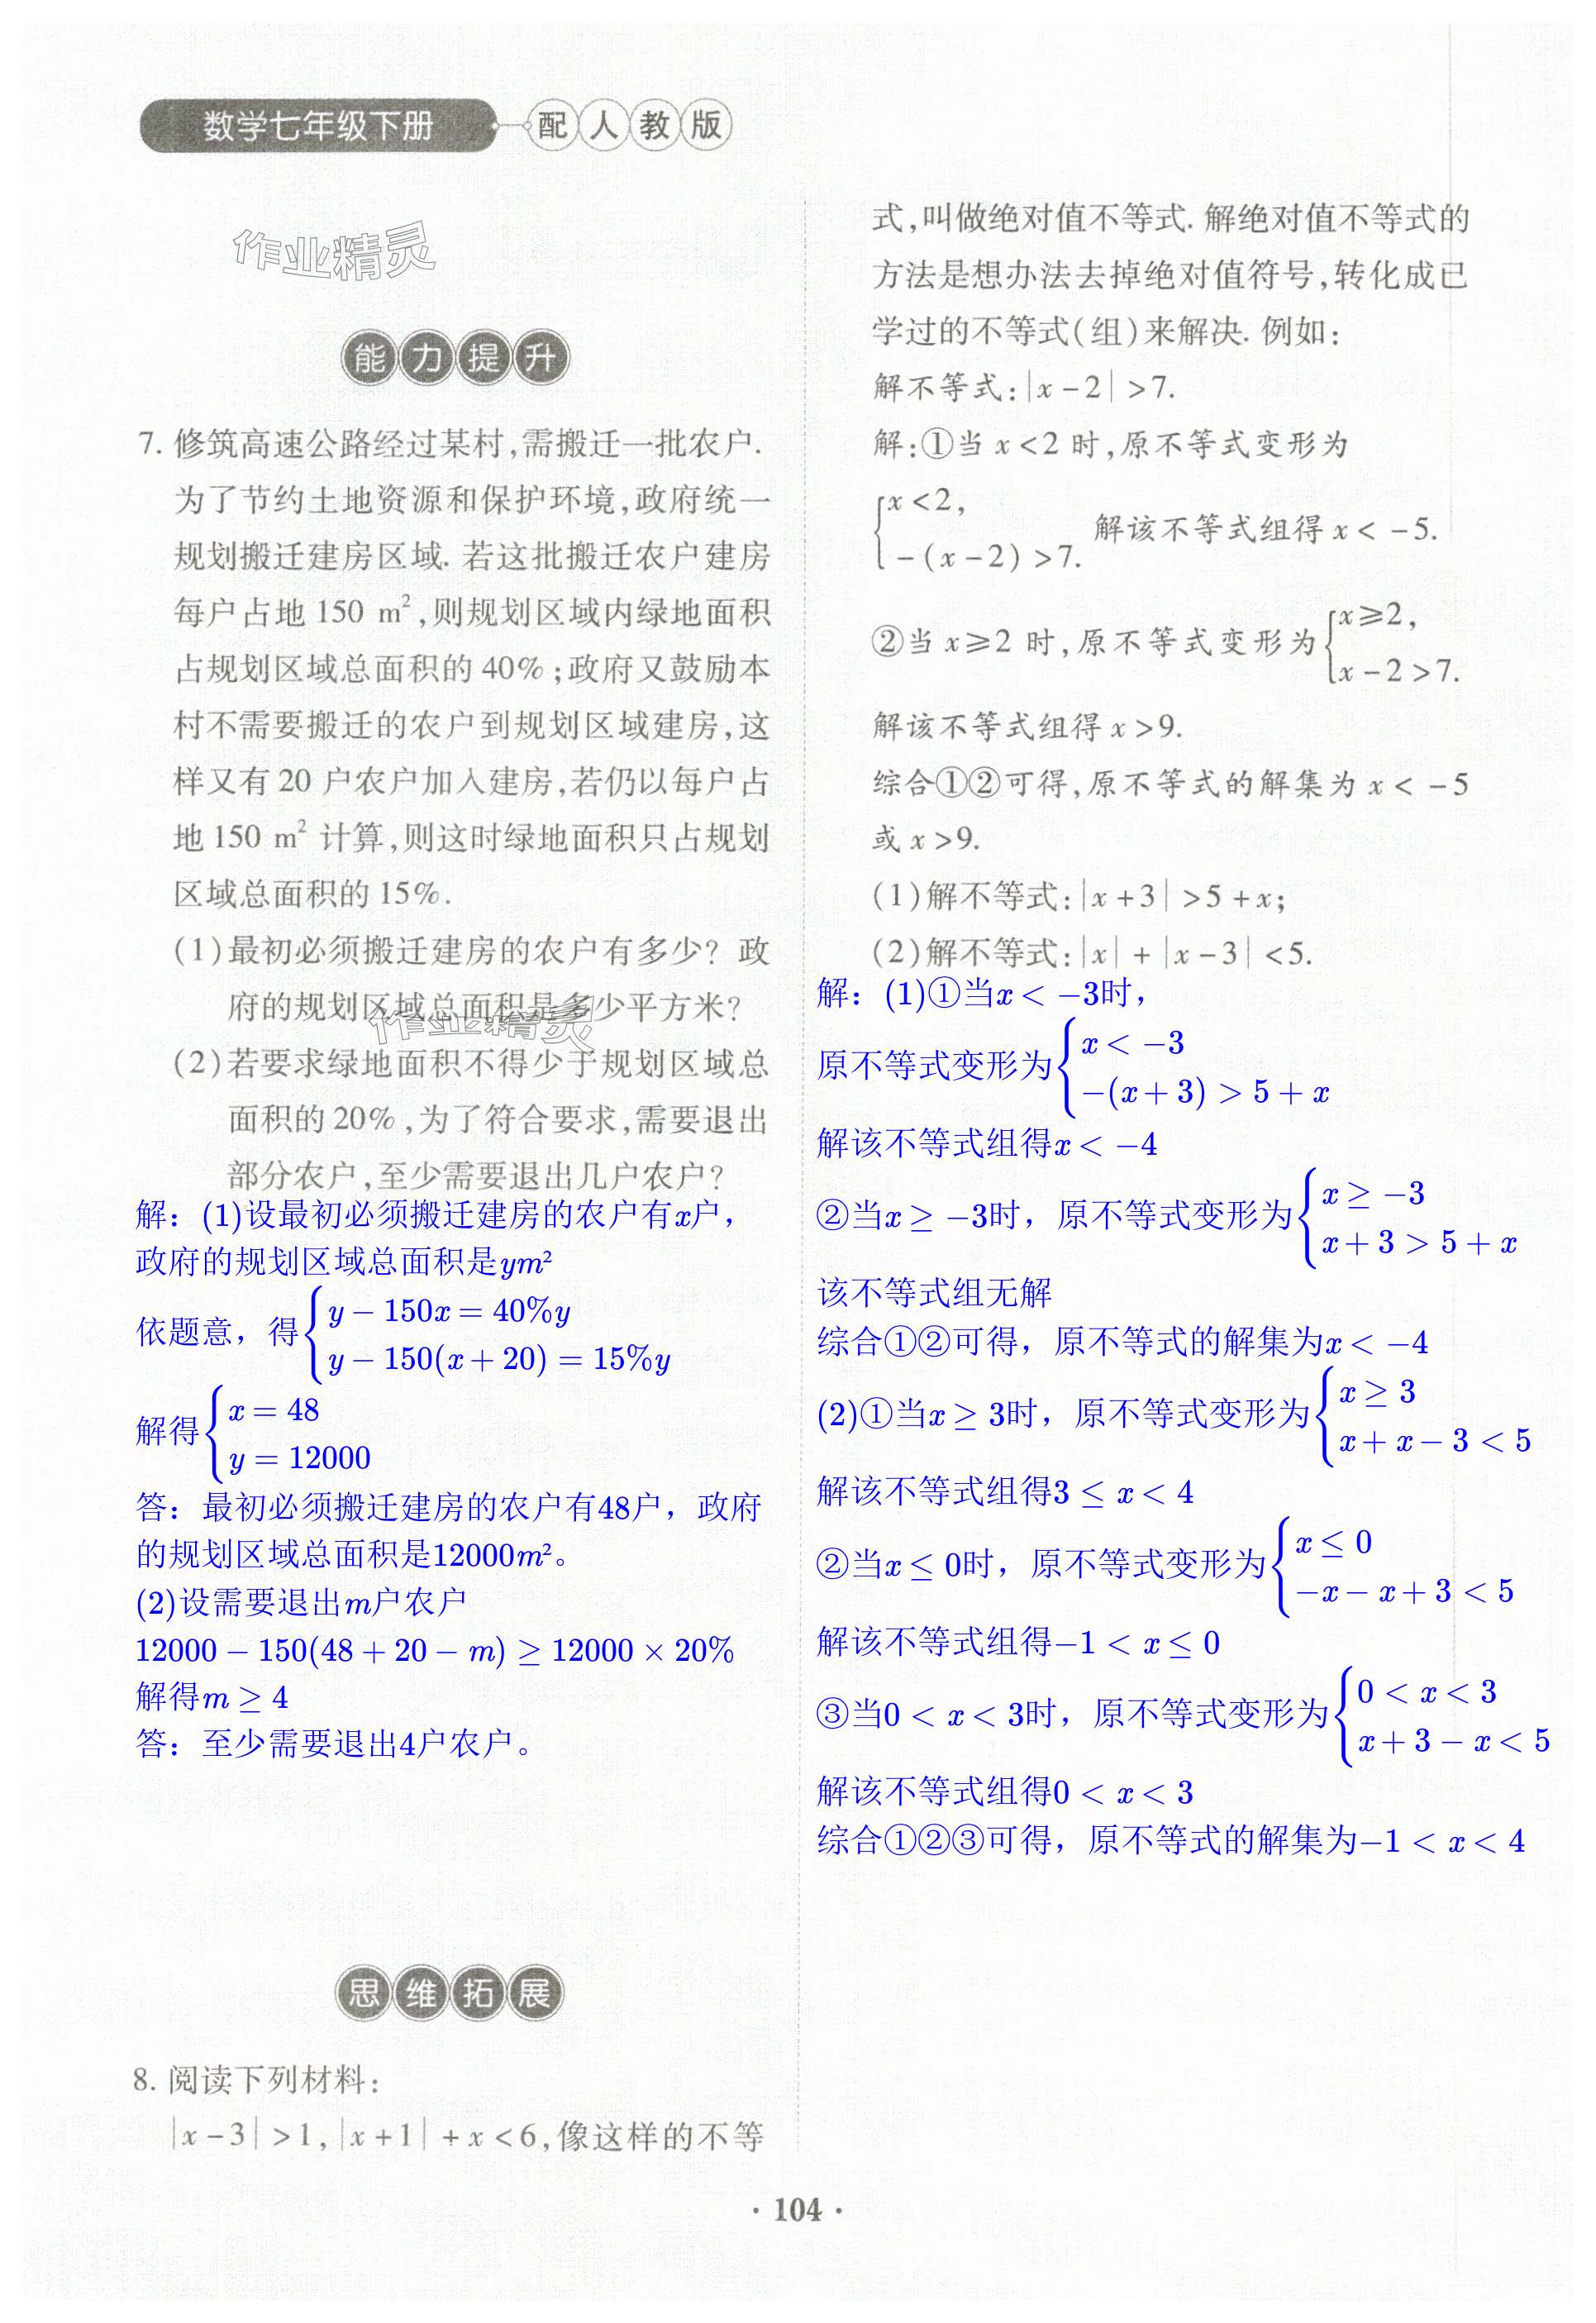 数学七年级下册 配人教版
作业精灵
能力提升
7. 修筑高速公路经过某村,需搬迁一批农户.
为了节约土地资源和保护环境,政府统一
规划搬迁建房区域. 若这批搬迁农户建房
每户占地 150 m²,则规划区域内绿地面积
占规划区域总面积的 40%;政府又鼓励本
村不需要搬迁的农户到规划区域建房,这
样又有 20 户农户加入建房,若仍以每户占
地 150 m² 计算,则这时绿地面积只占规划
区域总面积的 15%.
(1)最初必须搬迁建房的农户有多少? 政
府的规划区域总面积是多少平方米?
作业精灵
(2)若要求绿地面积不得少于规划区域总
面积的 20%,为了符合要求,需要退出
部分农户,至少需要退出几户农户?
解：(1)设最初必须搬迁建房的农户有x户，
政府的规划区域总面积是ym²
依题意，得{y − 150x = 40%y
y − 150(x + 20) = 15%y
解得{x = 48
y = 12000
答：最初必须搬迁建房的农户有48户，政府
的规划区域总面积是12000m²。
(2)设需要退出m户农户
12000 − 150(48 + 20 − m) ≥ 12000 × 20%
解得m ≥ 4
答：至少需要退出4户农户。
思维拓展
8. 阅读下列材料:
|x−3| >1, |x+1| +x<6,像这样的不等
式,叫做绝对值不等式. 解绝对值不等式的
方法是想办法去掉绝对值符号,转化成已
学过的不等式(组)来解决. 例如:
解不等式:|x−2| >7.
解:①当 x<2 时,原不等式变形为
{x<2,
−(x−2)>7. 解该不等式组得 x< −5.
②当 x≥2 时,原不等式变形为{x≥2,
x−2>7.
解该不等式组得 x>9.
综合①②可得,原不等式的解集为 x< −5
或 x>9.
(1)解不等式:|x+3| >5+x;
(2)解不等式:|x| + |x−3| <5.
解：(1)①当x < −3时，
原不等式变形为{x < −3
−(x + 3) > 5 + x
解该不等式组得x < −4
②当x ≥ −3时，原不等式变形为{x ≥ −3
x + 3 > 5 + x
该不等式组无解
综合①②可得，原不等式的解集为x < −4
(2)①当x ≥ 3时，原不等式变形为{x ≥ 3
x + x − 3 < 5
解该不等式组得3 ≤ x < 4
②当x ≤ 0时，原不等式变形为{x ≤ 0
−x − x + 3 < 5
解该不等式组得−1 < x ≤ 0
③当0 < x < 3时，原不等式变形为{0 < x < 3
x + 3 − x < 5
解该不等式组得0 < x < 3
综合①②③可得，原不等式的解集为−1 < x < 4
· 104 ·